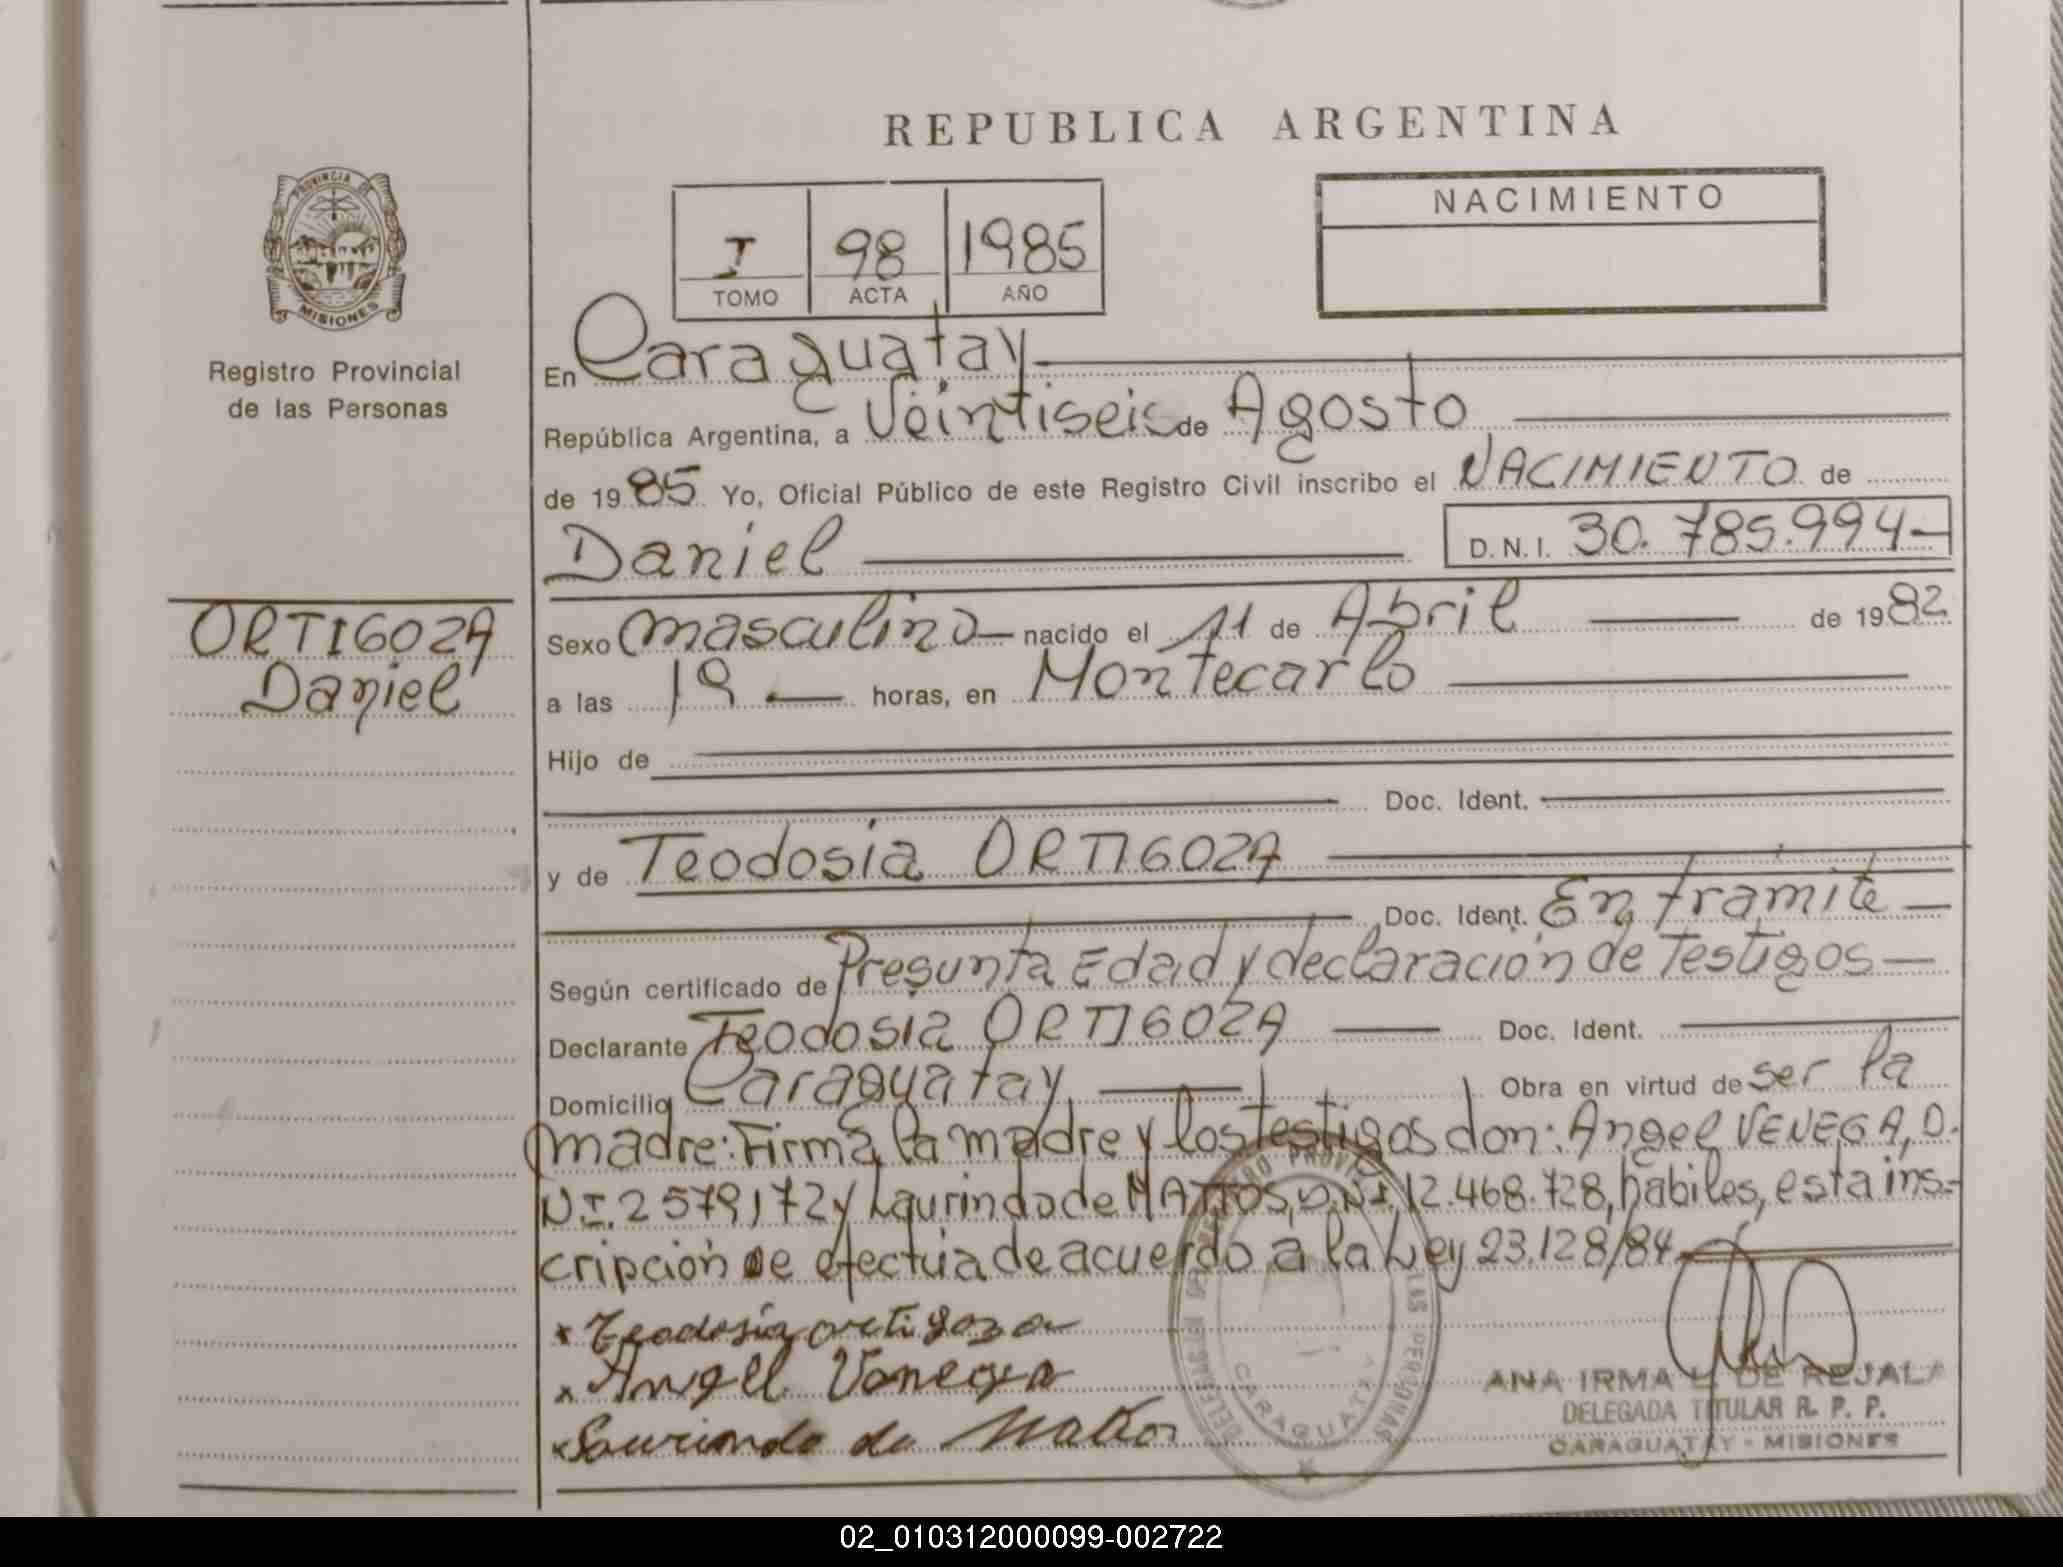 REPUBLICA ARGENTINA
PROVINCIA DE
MISIONES
Registro Provincial
de las Personas
NACIMIENTO
I 98 1985
TOMO ACTA AÑO
En Caraguatay
República Argentina, a Veintiseis de Agosto
de 1985 Yo, Oficial Público de este Registro Civil inscribo el NACIMIENTO de
Daniel D.N.I. 30.785.994-
ORTIGOZA
Daniel
Sexo masculino nacido el 11 de Abril de 1982
a las 19 horas, en Montecarlo
Hijo de
Doc. Ident.
y de Teodosia ORTIGOZA
Doc. Ident. En tramite
Según certificado de Presunta Edad y declaración de Testigos
Declarante Teodosia ORTIGOZA Doc. Ident.
Domicilio Caraguatay Obra en virtud de ser la
madre: Firma la madre y los testigos don: Angel VENEGA, D.
N.I. 2579172 y Laurindo de MATTOS, D.N.I. 12.468.728, habiles, esta ins-
cripción se efectúa de acuerdo a la Ley 23.128/84
x Teodosia ortigoza
x Angel Venega
x Laurindo de Mattos
CARAGUATAY
ANA IRMA L. DE REJALA
DELEGADA TITULAR R. P. P.
CARAGUATAY - MISIONES
02_010312000099-002722